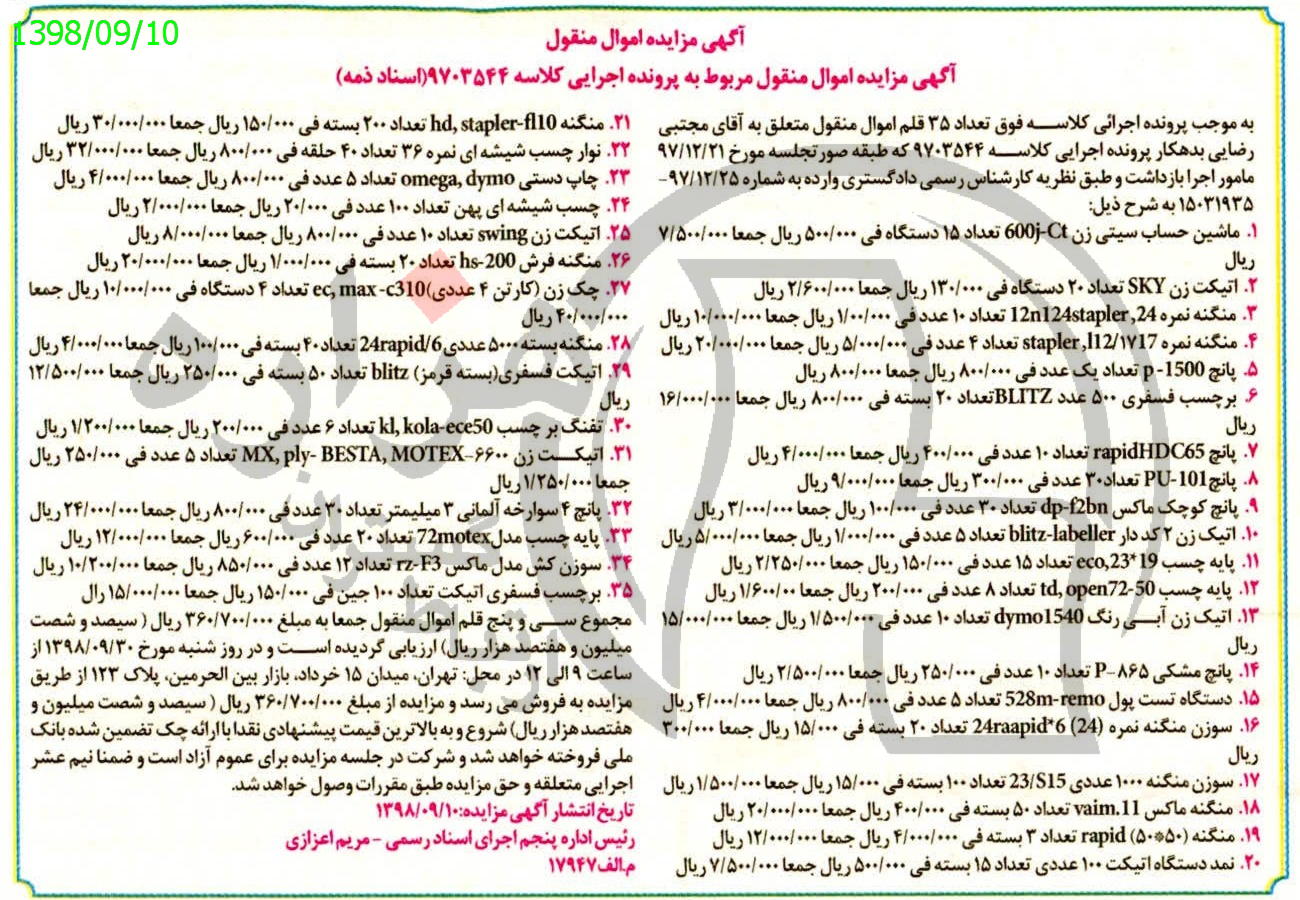 1398/09/10
آگهی مزایده اموال منقول
آگهی مزایده اموال منقول مربوط به پرونده اجرایی کلاسه ۹۷۰۳۵۴۴(اسناد ذمه)
به موجب پرونده اجرائی کلاســه فوق تعداد ۳۵ قلم اموال منقول متعلق به آقای مجتبی
رضایی بدهکار پرونده اجرایی کلاســه ۹۷۰۳۵۴۴ که طبقه صورتجلسه مورخ ۹۷/۱۲/۲۱
مامور اجرا بازداشت و طبق نظریه کارشناس رسمی دادگستری وارده به شماره ۹۷/۱۲/۲۵-
۱۵۰۳۱۹۳۵ به شرح ذیل:
۱. ماشین حساب سیتی زن 600j-Ct تعداد ۱۵ دستگاه فی ۵۰۰/۰۰۰ ریال جمعا ۷/۵۰۰/۰۰۰
ریال
۲. اتیکت زن SKY تعداد ۲۰ دستگاه فی ۱۳۰/۰۰۰ ریال جمعا ۲/۶۰۰/۰۰۰ ریال
۳. منگنه نمره 24, 12n124stapler تعداد ۱۰ عدد فی ۱/۰۰/۰۰۰ ریال جمعا ۱۰/۰۰۰/۰۰۰ ریال
۴. منگنه نمره stapler ,l12/۱۷17 تعداد ۴ عدد فی ۵/۰۰۰/۰۰۰ ریال جمعا ۲۰/۰۰۰/۰۰۰ ریال
۵. پانچ p-1500 تعداد یک عدد فی ۸۰۰/۰۰۰ ریال جمعا ۸۰۰/۰۰۰ ریال
۶. برچسب فسفری ۵۰۰ عدد BLITZتعداد ۲۰ بسته فی ۸۰۰/۰۰۰ ریال جمعا ۱۶/۰۰۰/۰۰۰
ریال
۷. پانچ rapidHDC65 تعداد ۱۰ عدد فی ۴۰۰/۰۰۰ ریال جمعا ۴/۰۰۰/۰۰۰ ریال
۸. پانچPU-101 تعداد۳۰ عدد فی ۳۰۰/۰۰۰ ریال جمعا ۹/۰۰۰/۰۰۰ ریال
۹. پانچ کوچک ماکس dp-f2bn تعداد ۳۰ عدد فی ۱۰۰/۰۰۰ ریال جمعا ۳/۰۰۰/۰۰۰ ریال
۱۰. اتیک زن ۲ کد دار blitz-labeller تعداد ۵ عدد فی ۱/۰۰۰/۰۰۰ ریال جمعا ۵/۰۰۰/۰۰۰ ریال
۱۱. پایه چسب eco,23*19 تعداد ۱۵ عدد فی ۱۵۰/۰۰۰ ریال جمعا ۲/۲۵۰/۰۰۰ ریال
۱۲. پایه چسب td, open72-50 تعداد ۸ عدد فی ۲۰۰/۰۰۰ ریال جمعا ۱/۶۰۰/۰۰ ریال
۱۳. اتیک زن آبــی رنگ dymo1540 تعداد ۱۰ عدد فی ۱/۵۰۰/۰۰۰ ریال جمعا ۱۵/۰۰۰/۰۰۰
ریال
۱۴. پانچ مشکی P-۸۶۵ تعداد ۱۰ عدد فی ۲۵۰/۰۰۰ ریال جمعا ۲/۵۰۰/۰۰۰ ریال
۱۵. دستگاه تست پول 528m-remo تعداد ۵ عدد فی ۸۰۰/۰۰۰ ریال جمعا ۴/۰۰۰/۰۰۰ ریال
۱۶. سوزن منگنه نمره (24) 24raapid*6 تعداد ۲۰ بسته فی ۱۵/۰۰۰ ریال جمعا ۳۰۰/۰۰۰
ریال
۱۷. سوزن منگنه ۱۰۰۰ عددی 23/S15 تعداد ۱۰۰ بسته فی ۱۵/۰۰۰ ریال جمعا ۱/۵۰۰/۰۰۰ ریال
۱۸. منگنه ماکس vaim.11 تعداد ۵۰ بسته فی ۴۰۰/۰۰۰ ریال جمعا ۲۰/۰۰۰/۰۰۰ ریال
۱۹. منگنه rapid (۵۰*۵۰) تعداد ۳ بسته فی ۴/۰۰۰/۰۰۰ ریال جمعا ۱۲/۰۰۰/۰۰۰ ریال
۲۰. نمد دستگاه اتیکت ۱۰۰ عددی تعداد ۱۵ بسته فی ۵۰۰/۰۰۰ ریال جمعا ۷/۵۰۰/۰۰۰ ریال
۲۱. منگنه hd, stapler-fl10 تعداد ۲۰۰ بسته فی ۱۵۰/۰۰۰ ریال جمعا ۳۰/۰۰۰/۰۰۰ ریال
۲۲. نوار چسب شیشه ای نمره ۳۶ تعداد ۴۰ حلقه فی ۸۰۰/۰۰۰ ریال جمعا ۳۲/۰۰۰/۰۰۰ ریال
۲۳. چاپ دستی omega, dymo تعداد ۵ عدد فی ۸۰۰/۰۰۰ ریال جمعا ۴/۰۰۰/۰۰۰ ریال
۲۴. چسب شیشه ای پهن تعداد ۱۰۰ عدد فی ۲۰/۰۰۰ ریال جمعا ۲/۰۰۰/۰۰۰ ریال
۲۵. اتیکت زن swing تعداد ۱۰ عدد فی ۸۰۰/۰۰۰ ریال جمعا ۸/۰۰۰/۰۰۰ ریال
۲۶. منگنه فرش hs-200 تعداد ۲۰ بسته فی ۱/۰۰۰/۰۰۰ ریال جمعا ۲۰/۰۰۰/۰۰۰ ریال
۲۷. چک زن (کارتن ۴ عددی)ec, max-c310 تعداد ۴ دستگاه فی ۱۰/۰۰۰/۰۰۰ ریال جمعا
۴۰/۰۰۰/۰۰۰ ریال
۲۸. منگنه بسته ۵۰۰۰ عددی 24rapid/6 تعداد ۴۰ بسته فی ۱۰۰/۰۰۰ ریال جمعا ۴/۰۰۰/۰۰۰ ریال
۲۹. اتیکت فسفری(بسته قرمز) blitz تعداد ۵۰ بسته فی ۲۵۰/۰۰۰ ریال جمعا ۱۲/۵۰۰/۰۰۰
ریال
۳۰. تفنگ بر چسب kl, kola-ece50 تعداد ۶ عدد فی ۲۰۰/۰۰۰ ریال جمعا ۱/۲۰۰/۰۰۰ ریال
۳۱. اتیکــت زن MX, ply- BESTA, MOTEX-۶۶۰۰ تعداد ۵ عدد فی ۲۵۰/۰۰۰ ریال
جمعا ۱/۲۵۰/۰۰۰ ریال
۳۲. پانچ ۴ سوارخه آلمانی ۳ میلیمتر تعداد ۳۰ عدد فی ۸۰۰/۰۰۰ ریال جمعا ۲۴/۰۰۰/۰۰۰ ریال
۳۳. پایه چسب مدل72motex تعداد ۲۰ عدد فی ۶۰۰/۰۰۰ ریال جمعا ۱۲/۰۰۰/۰۰۰ ریال
۳۴. سوزن کش مدل ماکس rz-F3 تعداد ۱۲ عدد فی ۸۵۰/۰۰۰ ریال جمعا ۱۰/۲۰۰/۰۰۰ ریال
۳۵. برچسب فسفری اتیکت تعداد ۱۰۰ جین فی ۱۵۰/۰۰۰ ریال جمعا ۱۵/۰۰۰/۰۰۰ رال
مجموع ســی و پنج قلم اموال منقول جمعا به مبلغ ۳۶۰/۷۰۰/۰۰۰ ریال ( سیصد و شصت
میلیون و هفتصد هزار ریال) ارزیابی گردیده اســت و در روز شنبه مورخ ۱۳۹۸/۰۹/۳۰ از
ساعت ۹ الی ۱۲ در محل: تهران، میدان ۱۵ خرداد، بازار بین الحرمین، پلاک ۱۲۳ از طریق
مزایده به فروش می رسد و مزایده از مبلغ ۳۶۰/۷۰۰/۰۰۰ ریال ( سیصد و شصت میلیون و
هفتصد هزار ریال) شروع و به بالاترین قیمت پیشنهادی نقدا با ارائه چک تضمین شده بانک
ملی فروخته خواهد شد و شرکت در جلسه مزایده برای عموم آزاد است و ضمنا نیم عشر
اجرایی متعلقه و حق مزایده طبق مقررات وصول خواهد شد.
تاریخ انتشار آگهی مزایده:۱۳۹۸/۰۹/۱۰
رئیس اداره پنجم اجرای اسناد رسمی - مریم اعزازی
م.الف۱۷۹۴۷